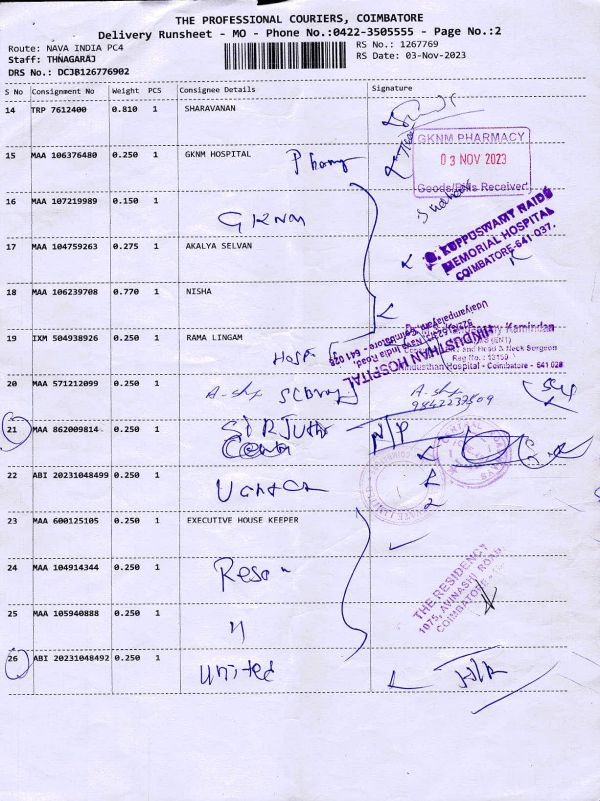 THE PROFESSIONAL COURIERS, COIMBATORE
Delivery Runsheet - MO - Phone No.:0422-3505555 - Page No.:2
Route: NAVA INDIA PC4
RS No.: 1267769
Staff: THNAGARAJ
RS Date: 03-Nov-2023
DRS No.: DCJB126776902
S No Consignment No Weight PCS Consignee Details Signature
14 TRP 7612400 0.810 1 SHARAVANAN
GKNM PHARMACY
03 NOV 2023
Goods/Bills Receiver
15 MAA 106376480 0.250 1 GKNM HOSPITAL
16 MAA 107219989 0.150 1 GKNM
G. KUPPUSWAMY NAIDU
MEMORIAL HOSPITAL
COIMBATORE-641 037.
17 MAA 104759263 0.275 1 AKALYA SELVAN
18 MAA 106239708 0.770 1 NISHA
19 IXM 504938926 0.250 1 RAMA LINGAM
HINDUSTHAN HOSPITAL
Nava India Road,
Udaiyampalayam, Coimbatore - 641 028
and Head & Neck Surgeon
Hindusthan Hospital - Coimbatore - 641 028
20 MAA 571212099 0.250 1
21 MAA 862009814 0.250 1
N/P
22 ABI 20231048499 0.250 1
23 MAA 600125105 0.250 1 EXECUTIVE HOUSE KEEPER
24 MAA 104914344 0.250 1
THE RESIDENCY
1075, AVINASHI ROAD,
COIMBATORE
25 MAA 105940888 0.250 1 "
26 ABI 20231048492 0.250 1 United